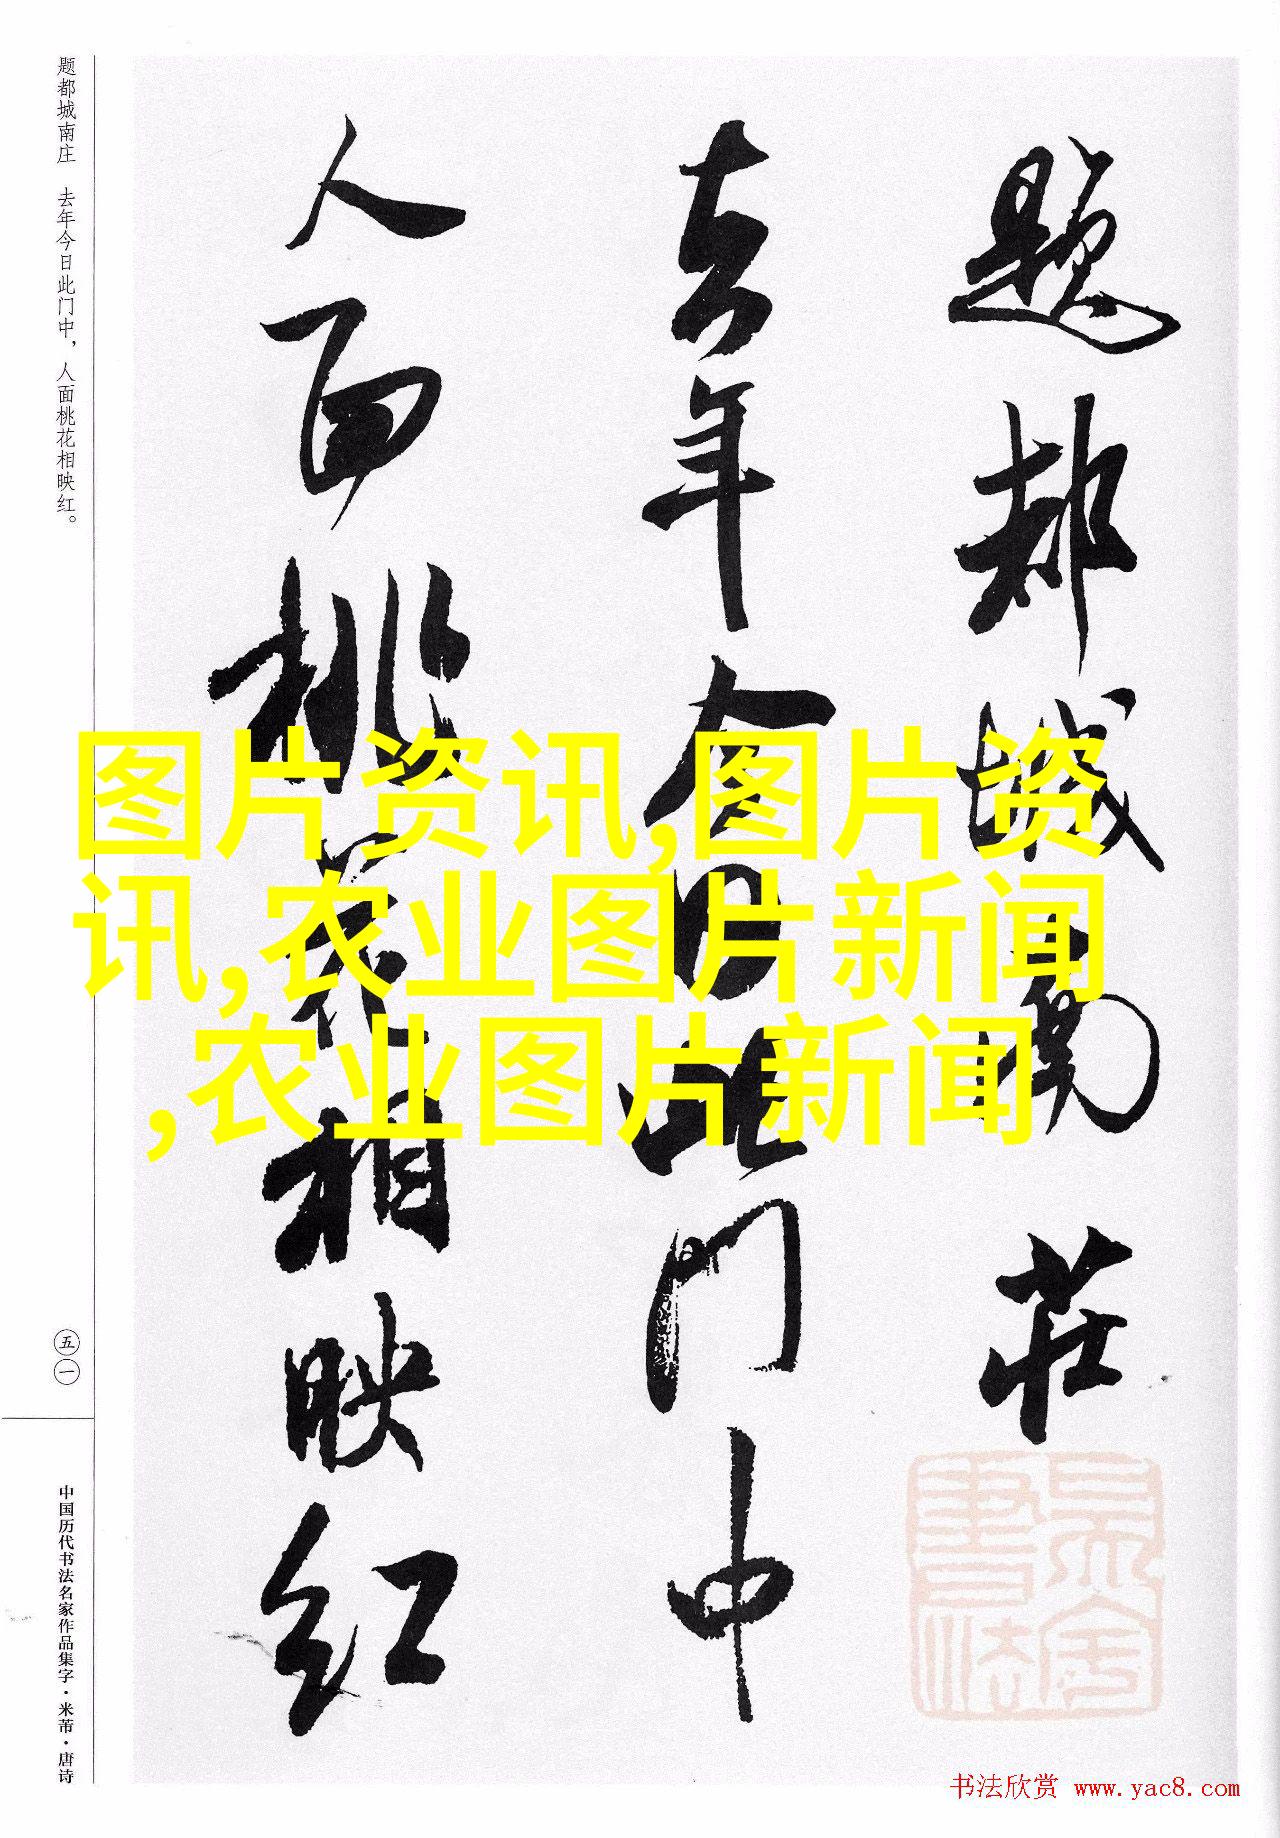 题都城南莊
去年今日此门中
人面桃花相映红
题都城南庄 去年今日此门中，人面桃花相映红。
五一
中国历代书法名家作品集字·米芾·唐诗
图片资讯,图片资
讯,农业图片新闻
,农业图片新闻
书法欣赏 www.yac8.com